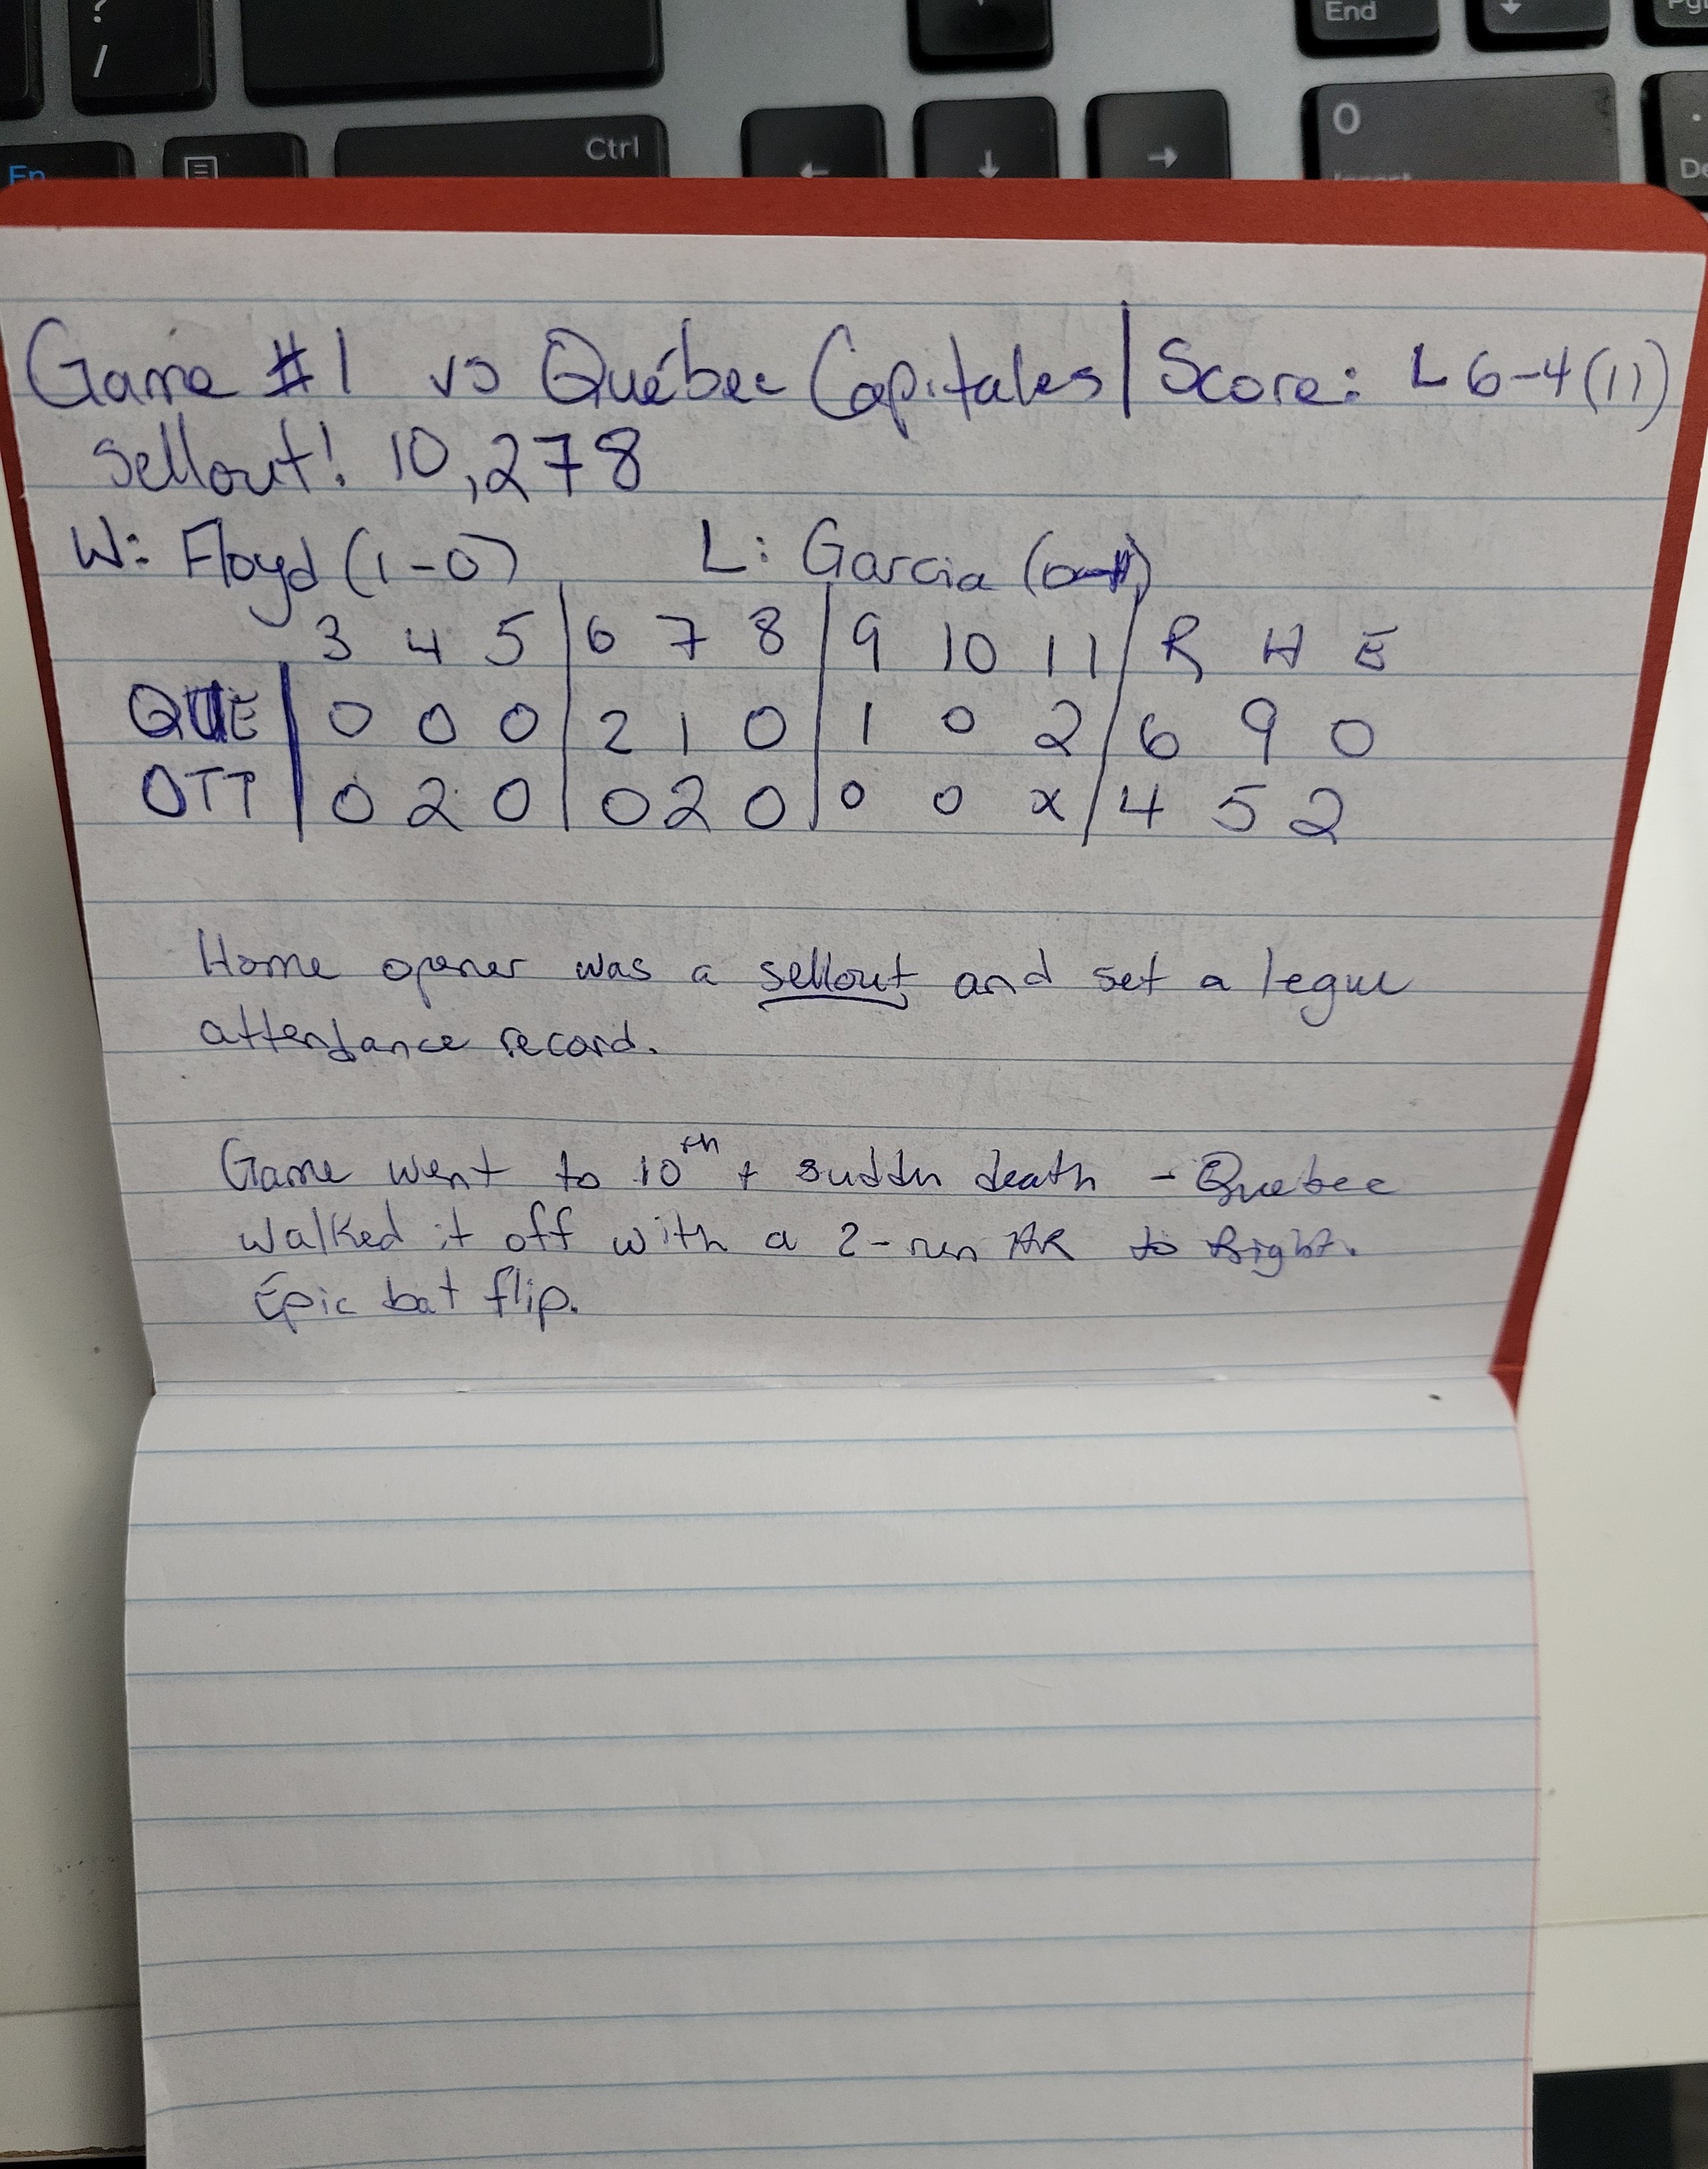 ?
/
End
Pg
Ctrl
0
←
↓
→
En
De
Game #1 vs Québec Capitales | Score: L 6-4 (11)
Sellout! 10,278
W: Floyd (1-0) L: Garcia (0-1)
3 4 5 | 6 7 8 | 9 10 11 | R H E
QUE | 0 0 0 | 2 1 0 | 1 0 2 | 6 9 0
OTT | 0 2 0 | 0 2 0 | 0 0 x | 4 5 2
Home opener was a sellout and set a legue
attendance record.
Game went to 10th + sudden death - Quebec
walked it off with a 2-run HR to Right.
Epic bat flip.